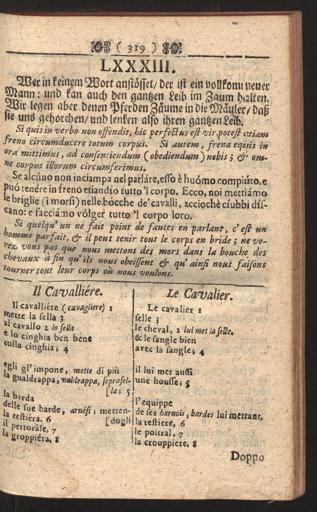 ( 319 )
LXXXIII.
Wer in keinem Wort anstösset/ der ist ein vollkommener
Mann: und kan auch den gantzen Leib im Zaum halten.
Wir legen aber denen Pferden Zäume in die Mäuler/ daß
sie uns gehorchen/ und lenken also ihren gantzen Leib.
Si quis in verbo non offendit, hic perfectus est vir, potest etiam
freno circumducere totum corpus. Si autem, frena equis in
ora mittimus, ad consentiendum (obediendum) nobis; & om-
ne corpus illorum circumferimus.
Se alcúno non inciampa nel parláre, esso è huómo compiúto, e
puó tenére in freno etiandío tutto 'l corpo. Ecco, noi mettiámo
le briglie (i morsi) nelle bócche de' cavalli, acciochè ciubbi dís-
cano: e facciámo vólger tutto 'l corpo loro.
Si quelqu' un ne fait point de fautes en parlant, c' est un
homme parfait, & il peut tenir tout le corps en bride; ne ve-
rez vous pas que nous mettons des mors dans la bouche des
chevaux à fin qu' ils nous obeïssent & qu' ainsi nous faisons
tourner tout leur corps où nous voulons.
Il Cavalliére.
Il cavalliére (cavagliere) 1
mette la sella 3
al cavallo 2 lo sella
e lo cinghia ben bene
colla cinghia; 4
egli gl' impone, mette di più
la gualdrappa, valdrappa, soprasel-
[la; 5
la barda
delle sue barde, arnési, metten-
[dogli
la testiéra. 6
il pettorále, 7
la groppiéra, 8
Le Cavalier.
Le cavalier 1
selle 3
le cheval, 2 lui met la selle,
& le sangle bien
avec la sangle; 4
il lui met aussi
une housse; 5
l'equippe
de ses harnois, bardes lui mettant,
la testiere, 6
le poitral, 7
la crouppiere, 8
Doppo